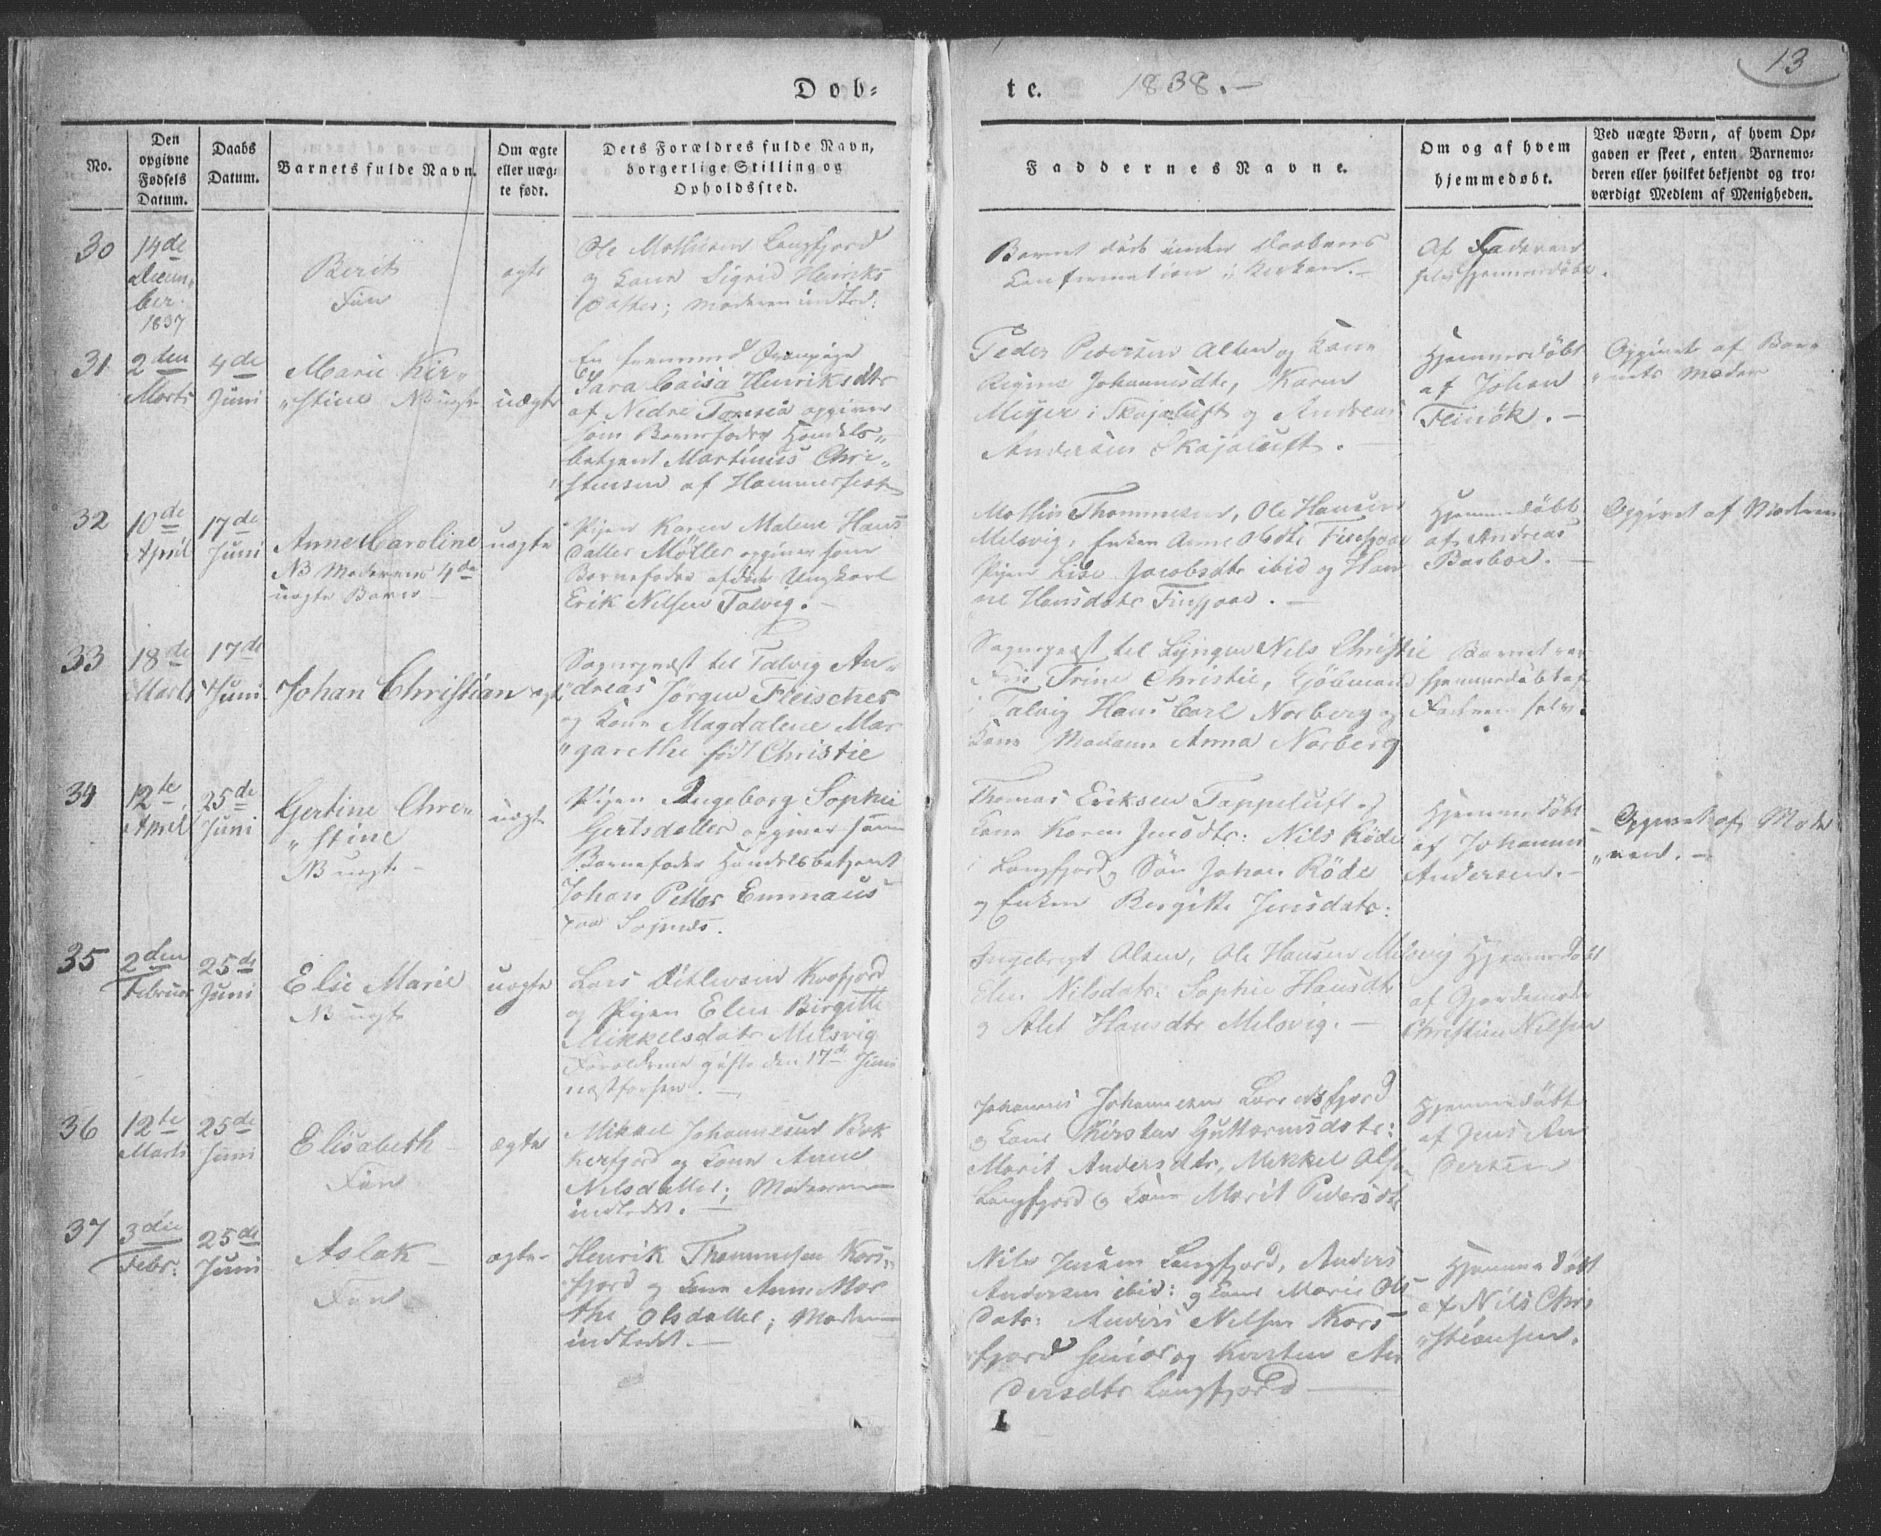 13
Døb-
te.
1838.-
No.
Den
opgivne
Fødsels
Datum.
Daabs
Datum.
Barnets fulde Navn.
Om ægte
eller uæg-
te født.
Dets Forældres fulde Navn,
borgerlige Stilling og
Opholdssted.
Faddernes Navne.
Om og af hvem
hjemmedøbt.
Ved uægte Børn, af hvem Op-
gaven er skeet, enten Barnemo-
deren eller hvilket bekjendt og tro-
værdigt Medlem af Menigheden.
30
14de
Decem-
ber.
1837
Berit
Fin
ægte
Ole Mathisen Langfjord
og Kone Sigrid Henriks
Datter; Moderen indled:
Barnet døde under Daabens
Confirmation i Kirken.-
Af Faderen
selv hjemmedøbt.
31
2den
Marts
4de
Juni
Marie Kir-
stine NB uægte
uægte
En fremmed
Sara Caisa Henriksdtr
af Nedre Tornea opgiver
som Barnefader Handels-
betjent Martinus Chri-
stensen af Hammerfest
Peder Pedersen Alten og Kone
Regine Johannesdtr, Karen
Meyer i Skajaluft og Andreas
Andersen Skajaluft.
Hjemmedøbt
af Johan
Flinök.-
Opgivet af Bar-
nets Moder
32
10de
April
17de
Juni
Anne Caroline
NB Moderens 4de
uægte Barn
uægte
Pigen Karen Malene Hans
datter Møller opgiver som
Barnefader afdøde Ungkarl
Erik Nilsen Talvig.-
Mathis Thommesen, Ole Hansen
Melsvig, Enken Anne Olsdtr
Pigen Lise Jacobsdtr ibid og
Hansdatr
Hjemmedøbt
af Andreas
Basboe.-
Opgivet af Moderen
33
18de
Marts
17de
Juni
Johan Christian
ægte
Sognepræst til Talvig An-
dreas Jørgen Fleischer
og Kone Magdalene Mar-
garethe født Christie
Sognepræst til Lyngen Nils Christie
Trine Christie, Kjöbmand
i Talvig Hans Carl Norberg og
Kone Madame Anna Norberg
Barnet er
hjemmedøbt af
Faderen selv.
34
12te
April
25de
Juni
Gertine Chri-
stine
NB uægte -
uægte
Pigen Ingeborg Sophie
Gertsdatter opgiver som
Barnefader Handelsbetjent
Johan Petter Emmaus
paa Sopnes.
Thomas Eriksen Tappeluft og
Kone Karen Jensdtr: Nils Röde
i Langfjord, Søn Johan Röde
og Enken Birgitte Jensdatr:
Hjemmedøbt
af Johannes
Andersen.-
Opgivet af Mode-
ren.-
35
2den
Februar
25de
Juni
Else Marie
NB uægte
uægte
Lars Ditlevsen Kvefjord
og Pigen Elen Birgitte
Mikkelsdatr Melsvig
Forældrene gifte den 17de Juni
næstforhen.-
Ingebrigt Olsen, Ole Hansen Melsvig
Elen Nilsdatr: Sophie Hansdtr
og Alet Hansdtr Melsvig.-
Hjemmedøbt
af Gjordemoder
Christine Nilsen
36
12te
Marts
25de
Juni
Elisabeth
Fin
ægte
Mikkel Johannesen Bok
kerfjord og Kone Anne
Nilsdatter; Moderen
indledet.-
Johannes Johannesen
og Kone Kirsten Guttormsdatr:
Marit Andersdtr, Mikkel Olsen
Langfjord og Kone Marit Pedersdtr
Hjemmedøbt
af Jens An
dersen
37
3die
Febr:
25de
Juni
Aslak
Fin
ægte-
Henrik Thommesen Kors-
fjord og Kone Anne Mar
the Olsdatter; Moderen
indledet.-
Nils Jensen Langfjord, Anders
Andersen ibid: og Kone Marie Ols
datr: Anders Nilsen Kors-
fjord Senior og Kirsten An
dersdtr Langfjord
Hjemmedøbt
af Nils Chri
stiansen.